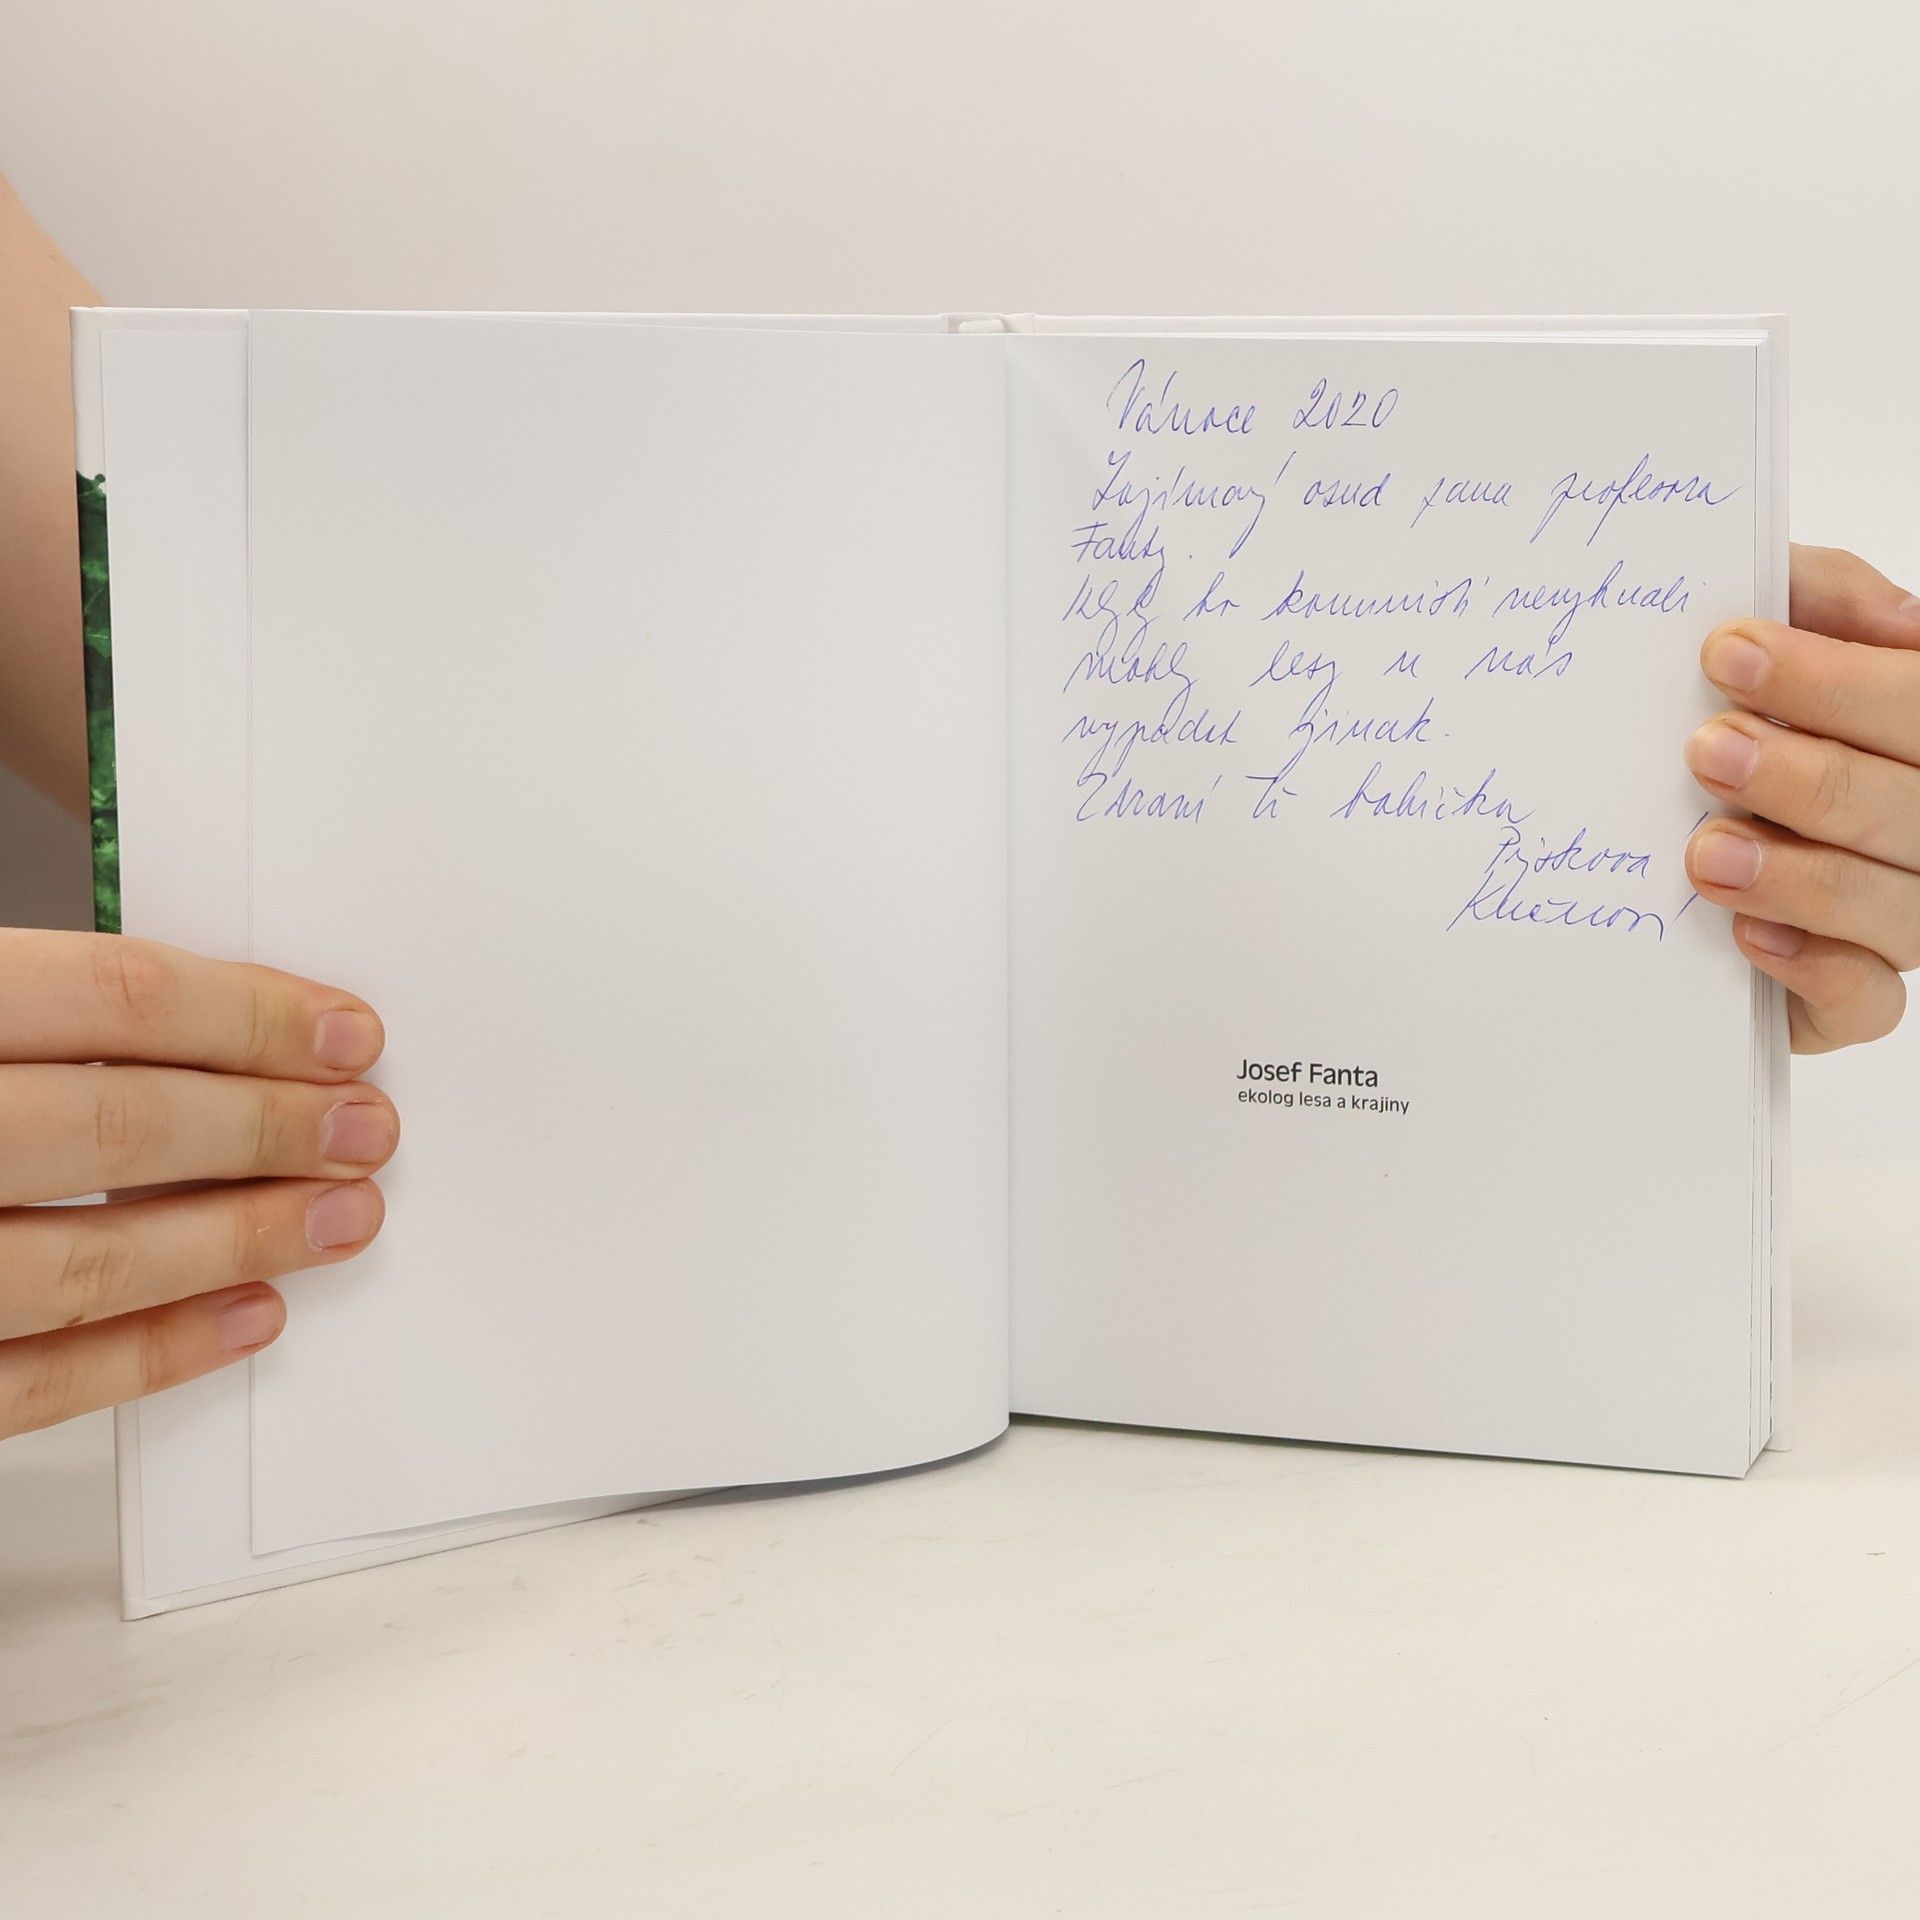 Vánoce 2020
Zajímavý osud pana profesora
Fanty.
Kdyby ho komunisti nevyhnali
mohly lesy u nás
vypadat jinak.
Zdraví Tě babička
Josef Fanta
ekolog lesa a krajiny